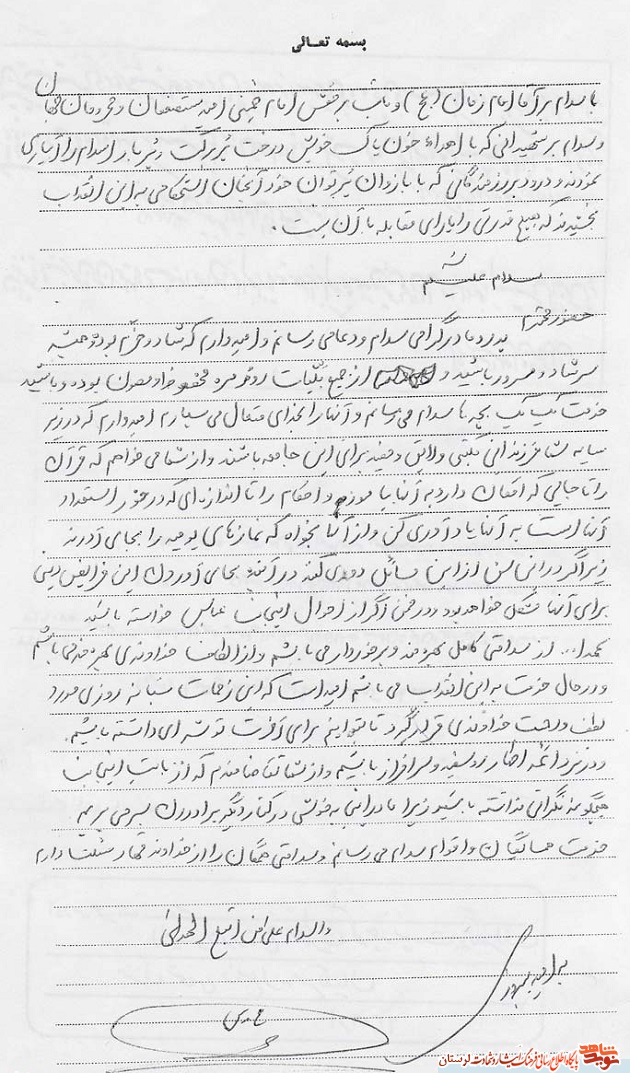 بسمه تعالی
با سلام بر آقا امام زمان (عج) و نائب برحقش امام خمینی امید مستضعفان و محرومان جهان
و سلام بر شهیدانی که با اهداء خون پاک خویش درخت پُر برگ و پُر بار اسلام را آبیاری
نمودند و درود بر رزمندگانی که با بازوان پُر توان خود آنچنان استحکامی به این انقلاب
بخشیدند که هیچ قدرتی را یارای مقابله با آن نیست.
سلام علیکم
حضور محترم پدر و مادر گرامی سلام و دعا می رسانم و امیدوارم که شاد و خرّم بوده و همیشه
سرشاد و مسرور باشید و از جمیع بلّیات روزمره محفوظ و مصون بوده و باشید
خدمت یک یک بچه ها سلام می رسانم و آنها را بخدای متعال می سپارم امیدوارم که در زیر
سایه شما فرزندانی لایق و مفید برای این جامعه باشند و از شما می خواهم که قرآن
را تا جایی که امکان دارد به آنها بیاموزید و احکام را تا اندازه ای که در خور استعداد
آنها است به آنها یادآوری کن و از آنها بخواه که نمازهای یومیه را بجای آورند
زیرا اگر در این سن از این مسائل دوری کنند در آینده بجای آوردن این فرایض دینی
برای آنها مشکل خواهد بود و در ضمن اگر از احوال اینجانب عباس خواسته باشید
بحمدا... از سلامتی کامل بهره مند و برخوردار می باشم و از الطاف خداوندی بهره مند می باشم
و در حال خدمت به این انقلاب می باشم امید است که این زحمات شبانه روزی مورد
لطف و رحمت خداوندی قرار گیرد تا بتوانیم برای آخرت توشه ای داشته باشیم.
و در نزد ائمه اطهار رو سفید و سرافراز باشیم و از شما تقاضامندم که از بابت اینجانب
هیچگونه نگرانی نداشته باشید زیرا ما در اینجا به خوشی در کنار دیگر برادران بسر می بریم
خدمت همسایگان و اقوام سلام می رسانم و سلامتی همگان را از خداوند قهار مسئلت دارم
والسلام علی من اتبع الهدی
شاهد
نوید
پایگاه اطلاع رسانی فرهنگ ایثار و شهادت لرستان